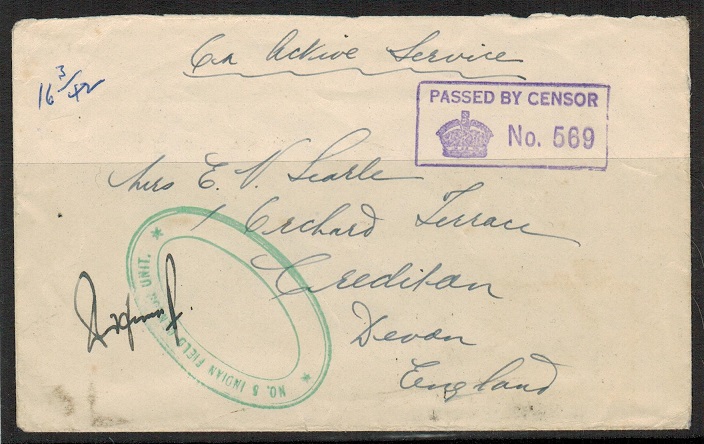 On Active Service
16 3/42
PASSED BY CENSOR
No. 569
Mrs E. V. Searle
1 Orchard Terrace
Crediton
Devon
England
* NO. 5 INDIAN FIELD CENSOR UNIT. *